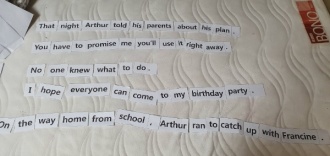 That night Arthur told his parents about his plan.
You have to promise me you'll use it right away.
No one knew what to do.
I hope everyone can come to my birthday party.
On the way home from school, Arthur ran to catch up with Francine.
BONO